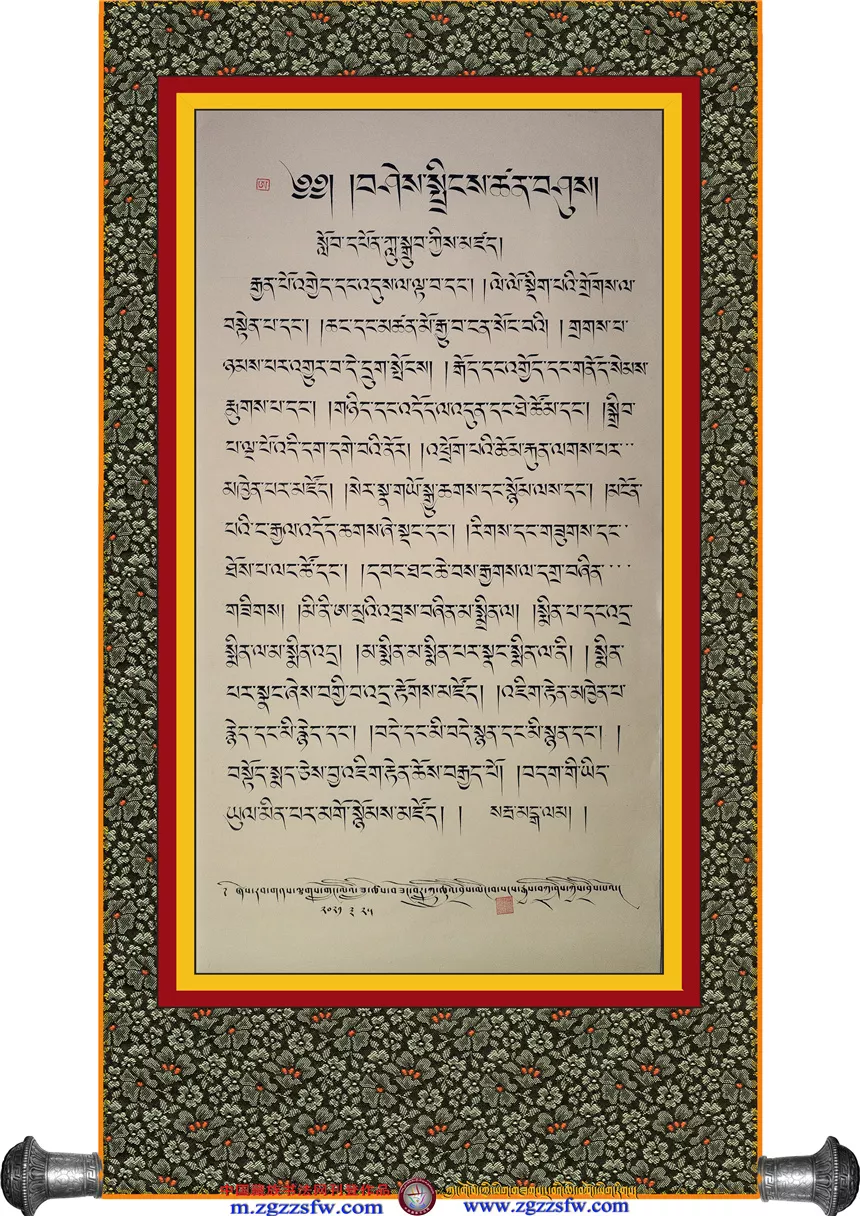 ༄༅། །བཤེས་སྤྲིངས་ཚན་བཤུས།
སློབ་དཔོན་ཀླུ་སྒྲུབ་ཀྱིས་མཛད།
རྒྱན་པོ་འགྱེད་དང་འདུས་ལ་ལྟ་བ་དང༌། །ལེ་ལོ་སྡིག་པའི་གྲོགས་ལ་
བསྟེན་པ་དང༌། །ཆང་དང་མཚན་མོ་རྒྱུ་བ་ངན་སོང་བའི། །གྲགས་པ་
ཉམས་པར་འགྱུར་བ་དེ་དྲུག་སྤོངས། །རྒོད་དང་འགྱོད་དང་གནོད་སེམས་
རྨུགས་པ་དང༌། །གཉིད་དང་འདོད་ལ་འདུན་དང་ཐེ་ཚོམ་དང༌། །སྒྲིབ་
པ་ལྔ་པོ་འདི་དག་དགེ་བའི་ནོར། །འཕྲོག་པའི་ཆོམ་རྐུན་ལགས་པར་
མཁྱེན་པར་མཛོད། །སེར་སྣ་གཡོ་སྒྱུ་ཆགས་དང་སྙོམ་ལས་དང༌། །མངོན་
པའི་ང་རྒྱལ་འདོད་ཆགས་ཞེ་སྡང་དང༌། །རིགས་དང་གཟུགས་དང་
ཐོས་པ་ལང་ཚོ་དང༌། །དབང་ཐང་ཆེ་བས་རྒྱགས་ལ་དགྲ་བཞིན་
གཟིགས། །མི་ནི་ཨ་མྲའི་འབྲས་བཞིན་མ་སྨྲིན་ལ། །སྨིན་པ་དང་འདྲ་
སྨིན་ལ་མ་སྨིན་འདྲ། །མ་སྨིན་མ་སྨིན་པར་སྣང་སྨིན་ལ་ནི། །སྨིན་
པར་སྣང་ཞེས་བགྱི་བ་འདྲ་རྟོགས་མཛོད། །འཇིག་རྟེན་མཁྱེན་པ་
རྙེད་དང་མི་རྙེད་དང༌། །བདེ་དང་མི་བདེ་སྙན་དང་མི་སྙན་དང༌། །
བསྟོད་སྨད་ཅེས་བྱ་འཇིག་རྟེན་ཆོས་བརྒྱད་པོ། །བདག་གི་ཡིད་
ཡུལ་མིན་པར་མགོ་སྙོམས་མཛོད། །
༢༠༢༡ ༣ ༢༥
中国藏族书法网刊登作品
m.zgzzsfw.com
www.zgzzsfw.com